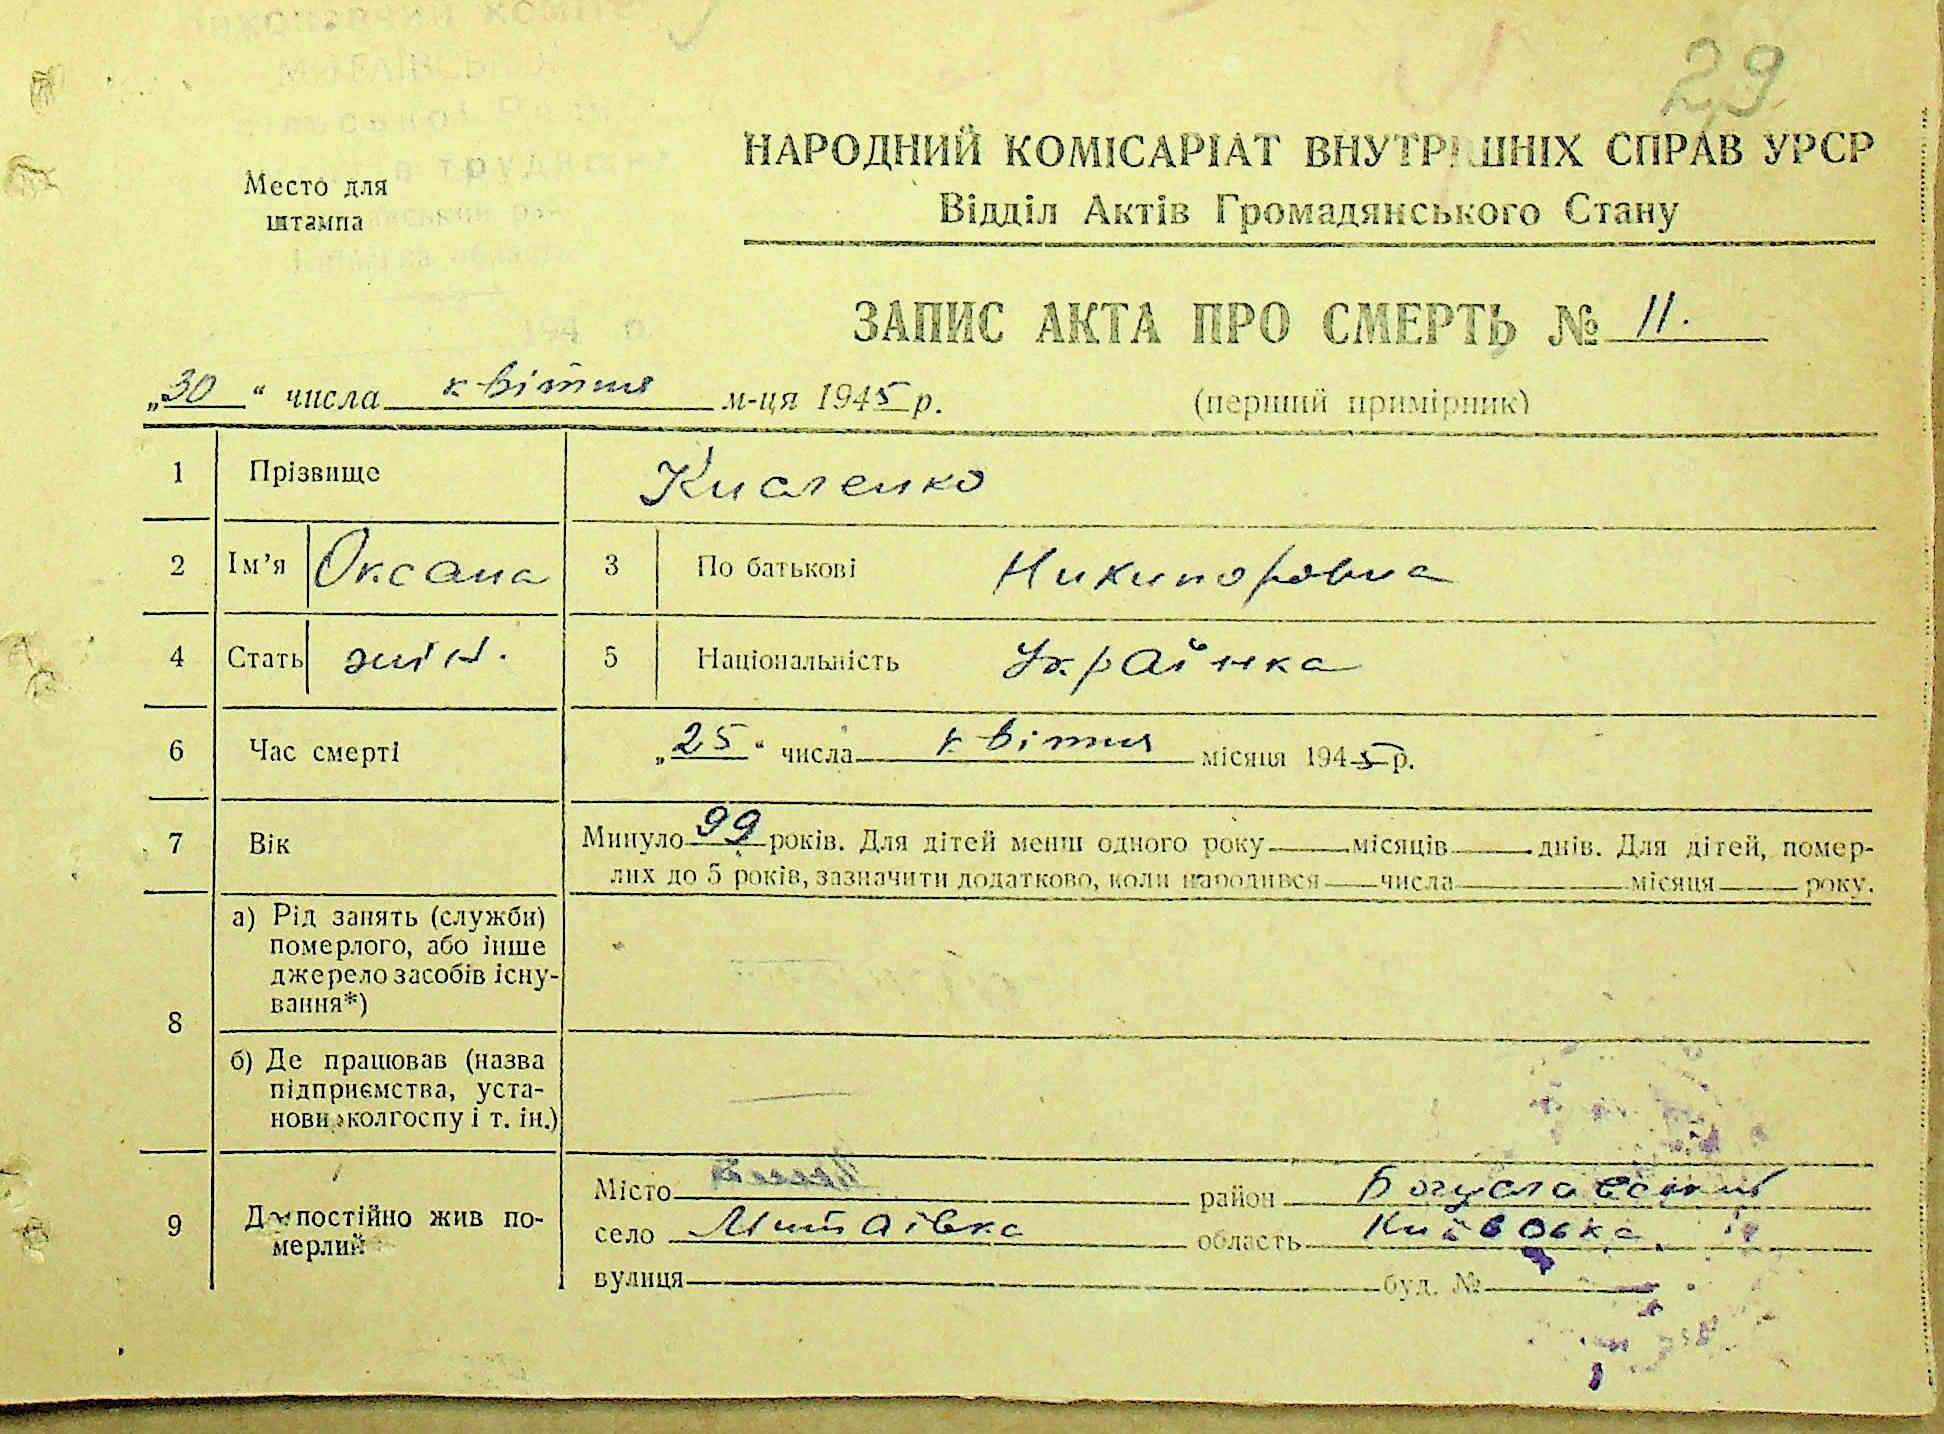 29
НАРОДНИЙ КОМІСАРІАТ ВНУТРІШНІХ СПРАВ УРСР
Место для
штампа
Відділ Актів Громадянського Стану
ЗАПИС АКТА ПРО СМЕРТЬ № 11.
„30“ числа квітня м-ця 1945 р.
(перший примірник)
1 Прізвище Кисленко
2 Ім’я Оксана 3 По батькові Никипоровна
4 Стать жін. 5 Національність Українка
6 Час смерті „25“ числа квітня місяця 1945 р.
7 Вік Минуло 99 років. Для дітей менш одного року місяців днів. Для дітей, помер-
лих до 5 років, зазначити додатково, коли народився числа місяця року.
8 а) Рід занять (служби)
померлого, або інше
джерело засобів існу-
вання*)
б) Де працював (назва
підприємства, уста-
нови, колгоспу і т. ін.)
9 Де постійно жив по-
мерлий
Місто район Богуславский
село Митаївка область Київська
вулиця буд. №